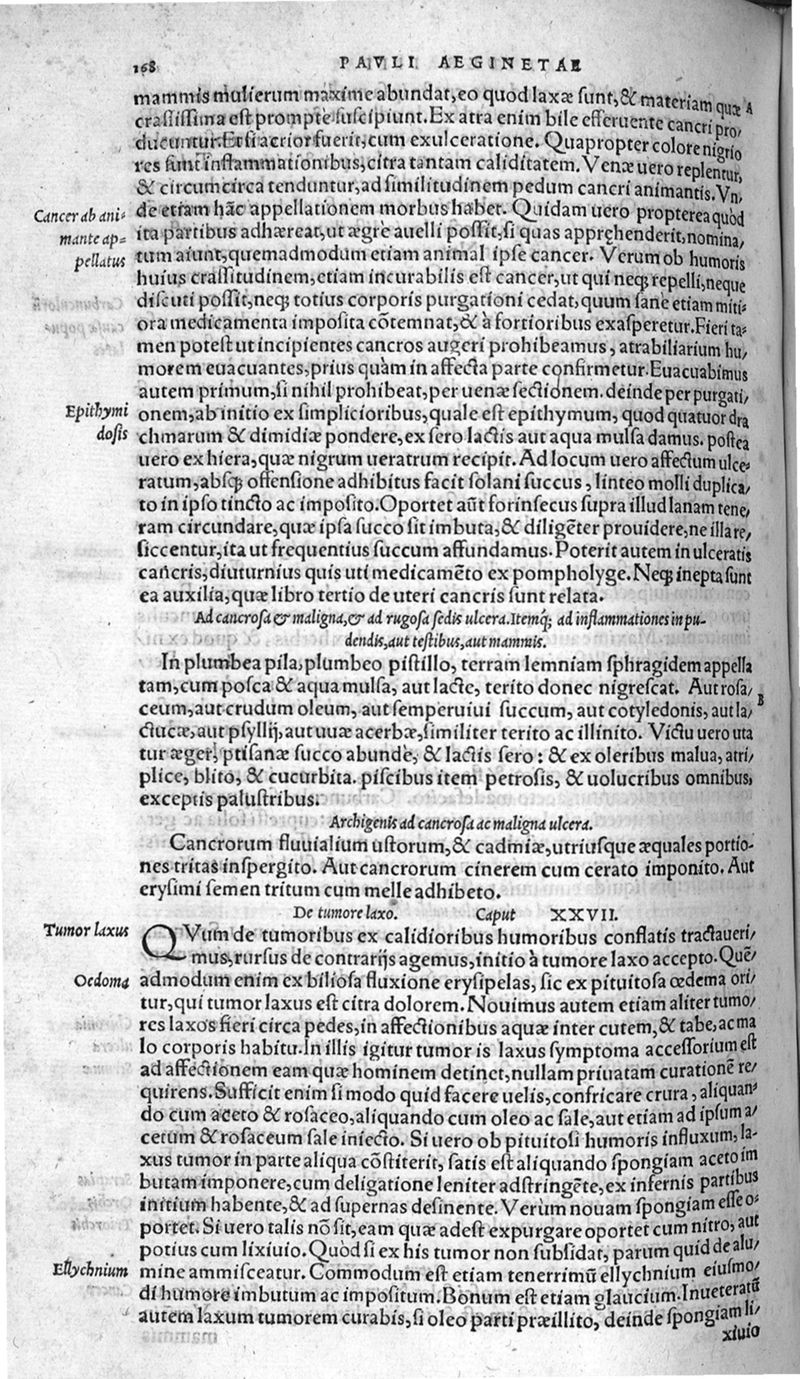 168 PAVLI AEGINETAE
mammis mulierum maxime abundat, eo quod laxæ sunt, & materiam quæ A
crassissima est prompte suscipiunt. Ex atra enim bile efferuente cancri pro/
ducuntur. Et si acrior fuerit, cum exulceratione. Quapropter colore nigrio
res sunt inflammationibus, citra tantam caliditatem. Venæ uero replentur,
& circumcirca tenduntur, ad similitudinem pedum cancri animantis. Vn/
Cancer ab ani= de etiam hāc appellationem morbus habet. Quidam uero propterea quòd
mante ap= ita partibus adhæreat, ut ægre auelli possit, si quas apprehenderit, nomina/
pellatus tum aiunt, quemadmodum etiam animal ipse cancer. Verum ob humoris
huius crassitudinem, etiam incurabilis est cancer, ut qui neq; repelli, neque
discuti possit, neq; totius corporis purgationi cedat, quum sane etiam miti=
ora medicamenta imposita cōtemnat, & à fortioribus exasperetur. Fieri ta/
men potest ut incipientes cancros augeri prohibeamus, atrabiliarium hu/
morem euacuantes, prius quàm in affecta parte confirmetur. Euacuabimus
autem primum, si nihil prohibeat, per uenæ sectionem. deinde per purgati/
Epithymi onem, ab initio ex simplicioribus, quale est epithymum, quod quatuor dra
dosis chmarum & dimidiæ pondere, ex sero lactis aut aqua mulsa damus. postea
uero ex hiera, quæ nigrum ueratrum recipit. Ad locum uero affectum ulce=
ratum, absq; offensione adhibitus facit solani succus, linteo molli duplica/
to in ipso tincto ac imposito. Oportet aūt forinsecus supra illud lanam tene/
ram circundare, quæ ipsa succo sit imbuta, & diligēter prouidere, ne illa re/
siccentur, ita ut frequentius succum affundamus. Poterit autem in ulceratis
cancris, diuturnius quis uti medicamēto ex pompholyge. Neq; inepta sunt
ea auxilia, quæ libro tertio de uteri cancris sunt relata.
Ad cancrosa & maligna, & ad rugosa sedis ulcera. Itemq; ad inflammationes in pu-
dendis, aut testibus, aut mammis.
In plumbea pila, plumbeo pistillo, terram lemniam sphragidem appella
tam, cum posca & aqua mulsa, aut lacte, terito donec nigrescat. Aut rosa/ B
ceum, aut crudum oleum, aut semperuiui succum, aut cotyledonis, aut la/
ctucæ, aut psyllij, aut uuæ acerbæ, similiter terito ac illinito. Victu uero uta
tur æger, ptisanæ succo abunde, & lactis sero: & ex oleribus malua, atri/
plice, blito, & cucurbita. piscibus item petrosis, & uolucribus omnibus,
exceptis palustribus.
Archigenis ad cancrosa ac maligna ulcera.
Cancrorum fluuialium ustorum, & cadmiæ, utriusque æquales portio-
nes tritas inspergito. Aut cancrorum cinerem cum cerato imponito. Aut
erysimi semen tritum cum melle adhibeto.
De tumore laxo. Caput XXVII.
Tumor laxus QVum de tumoribus ex calidioribus humoribus conflatis tractaueri/
mus, rursus de contrarijs agemus, initio à tumore laxo accepto. Quē/
Oedoma admodum enim ex biliosa fluxione erysipelas, sic ex pituitosa œdema ori/
tur, qui tumor laxus est citra dolorem. Nouimus autem etiam aliter tumo/
res laxos fieri circa pedes, in affectionibus aquæ inter cutem, & tabe, ac ma
lo corporis habitu. In illis igitur tumor is laxus symptoma accessorium est
ad affectionem eam quæ hominem detinet, nullam priuatam curationē re/
quirens. Sufficit enim si modo quid facere uelis, confricare crura, aliquan=
do cum aceto & rosaceo, aliquando cum oleo ac sale, aut etiam ad ipsum a/
cetum & rosaceum sale iniecto. Si uero ob pituitosi humoris influxum, la-
xus tumor in parte aliqua cōstiterit, satis est aliquando spongiam aceto im
butam imponere, cum deligatione leniter adstringēte, ex infernis partibus
initium habente, & ad supernas desinente. Verùm nouam spongiam esse o=
portet. Si uero talis nō sit, eam quæ adest expurgare oportet cum nitro, aut
potius cum lixiuio. Quòd si ex his tumor non subsidat, parum quid de alu/
Ellychnium mine ammisceatur. Commodum est etiam tenerrimū ellychnium eiusmo/
di humore imbutum ac impositum. Bonum est etiam glaucium. Inueteratū
autem laxum tumorem curabis, si oleo parti præillito, deinde spongiam li/
xiuio